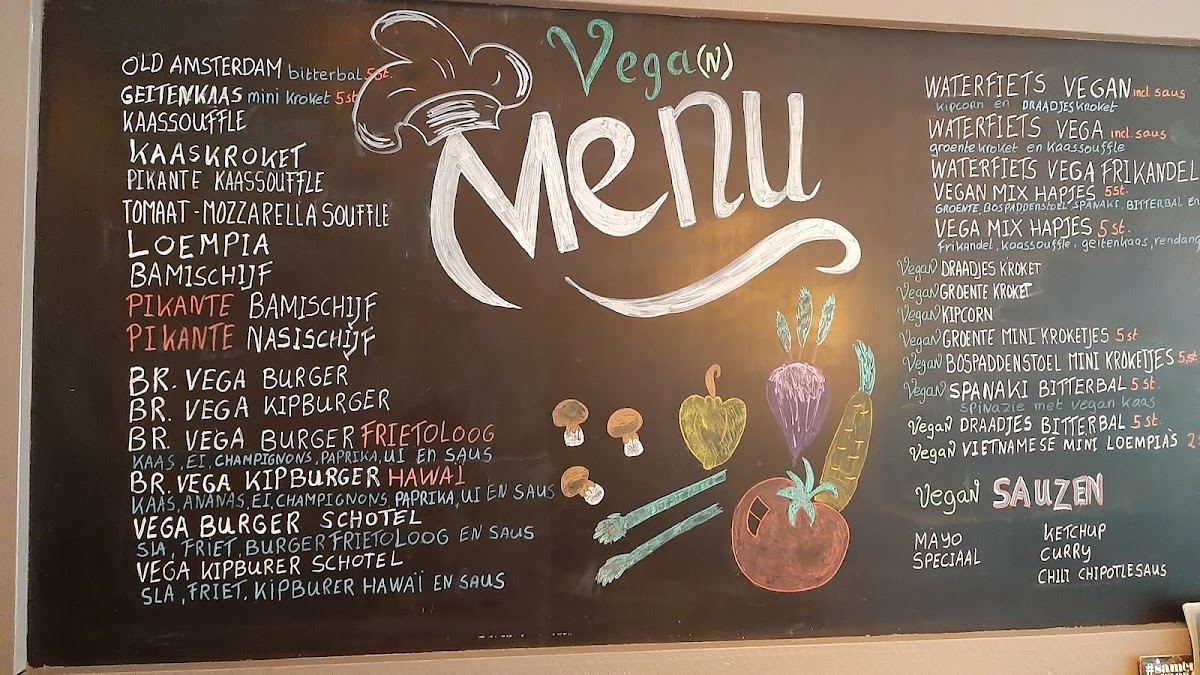 Vega(N)
Menu
OLD AMSTERDAM bitterbal 5st.
GEITENKAAS mini kroket 5st
KAASSOUFFLE
KAASKROKET
PIKANTE KAASSOUFFLE
TOMAAT-MOZZARELLA SOUFFLE
LOEMPIA
BAMISCHIJF
PIKANTE BAMISCHIJF
PIKANTE NASISCHIJF
BR. VEGA BURGER
BR. VEGA KIPBURGER
BR. VEGA BURGER FRIETOLOOG
KAAS, EI, CHAMPIGNONS, PAPRIKA, UI EN SAUS
BR. VEGA KIPBURGER HAWAÏ
KAAS, ANANAS, EI, CHAMPIGNONS, PAPRIKA, UI EN SAUS
VEGA BURGER SCHOTEL
SLA, FRIET, BURGER FRIETOLOOG EN SAUS
VEGA KIPBURER SCHOTEL
SLA, FRIET, KIPBURER HAWAÏ EN SAUS
WATERFIETS VEGAN incl. saus
kipcorn en DRAADJESKROKET
WATERFIETS VEGA incl. saus
groente kroket en kaassouffle
WATERFIETS VEGA FRIKANDEL
VEGAN MIX HAPJES 5st.
GROENTE, BOSPADDENSTOEL, SPANAKI, BITTERBAL EN
VEGA MIX HAPJES 5st.
frikandel, kaassouffle, geitenkaas, rendang
Vegan DRAADJES KROKET
Vegan GROENTE KROKET
Vegan KIPCORN
Vegan GROENTE MINI KROKETJES 5st.
Vegan BOSPADDENSTOEL MINI KROKETJES 5st
Vegan SPANAKI BITTERBAL 5st.
SPINAZIE met vegan kaas
Vegan DRAADJES BITTERBAL 5st
Vegan VIETNAMESE MINI LOEMPIA'S 2
Vegan SAUZEN
MAYO
SPECIAAL
KETCHUP
CURRY
CHILI CHIPOTLESAUS
#samen